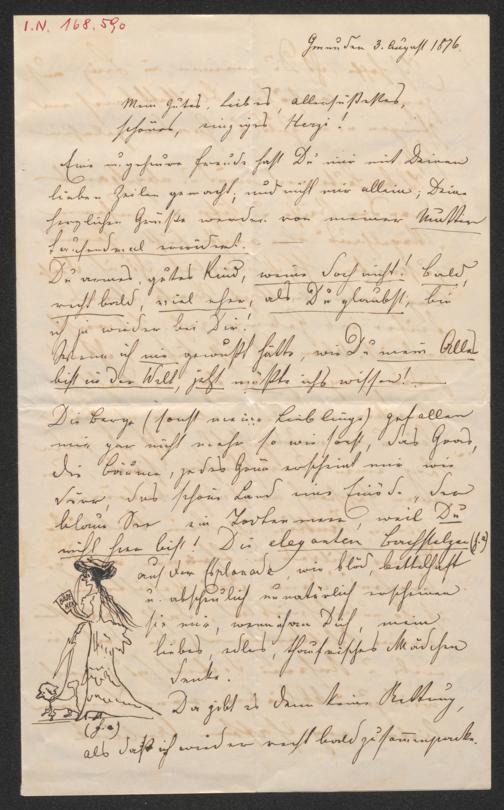 I.N. 168.590
Gmunden 3. August 1876.
Mein gutes, liebes allersüßestes,
schönes, einziges Herzi!
Eine ungeheure Freude hast Du mir mit Deinen
lieben Zeilen gemacht; und nicht mir allein; Deine
herzlichen Grüße werden von meiner Mutter
tausendmal erwidert.
Du armes, gutes Kind, weine doch nicht! Bald,
recht bald, viel eher, als Du glaubst, bin
ich ja wieder bei Dir!
Wenn ich nie gewußt hätte, wie Du mein Alles
bist in der Welt, jetzt müßte ichs wissen!
Die Berge (sonst meine Lieblinge) gefallen
mir gar nicht mehr so wie sonst, das Gras,
die Bäume, jedes Grün erscheint mir wie
dürr, das schöne Land eine Einöde, der
blaue See ein Todtenmeer, weil Du
nicht hier bist! Die eleganten Bachstelzen
auf der Esplanade, wie blöd,
u. abscheulich unnatürlich erscheinen
sie mir, wenn ich an Dich, mein
liebes, edles, thaufrisches Mädchen
denke.
Da gibt es denn keine Rettung,
als daß ich wieder recht bald zusammenpacke.